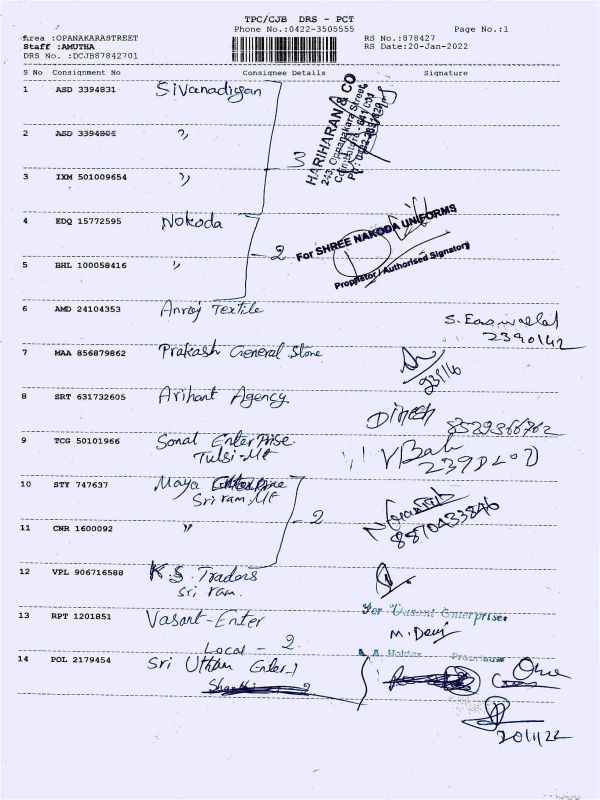 TPC/CJB DRS - PCT
Phone No.:0422-3505555 Page No.:1
Area :OPANAKARASTREET RS No.:878427
Staff :AMUTHA RS Date:20-Jan-2022
DRS No. :DCJB87842701
S No Consignment No Consignee Details Signature
1 ASD 3394831 Sivanadiyan
HARIHARAN & CO
243, Oppanakara Street
Coimbatore - 641 001
2 ASD 3394806 "
3
3 IXM 501009654 "
4 EDQ 15772595 Nokoda
For SHREE NAKODA UNIFORMS
- 2
Proprietor / Authorised Signatory
5 BHL 100058416 "
6 AMD 24104353 Anroj Textile
2390142
7 MAA 856879862 Prakash General Store
8 SRT 631732605 Arihant Agency
Dinesh
9 TCG 50101966 Sonal Enterprise
Tulsi-Mt
10 STY 747637 Maya Enterprise
Sriram, Mt
- 2
11 CNR 1600092 "
8870433846
12 VPL 906716588 K.S. Traders
Sri ram.
13 RPT 1201851 Vasant-Enter
For Vasant Enterprises
M. Devi
Local - 2
14 POL 2179454 Sri Uttam Enter-1
20/1/22